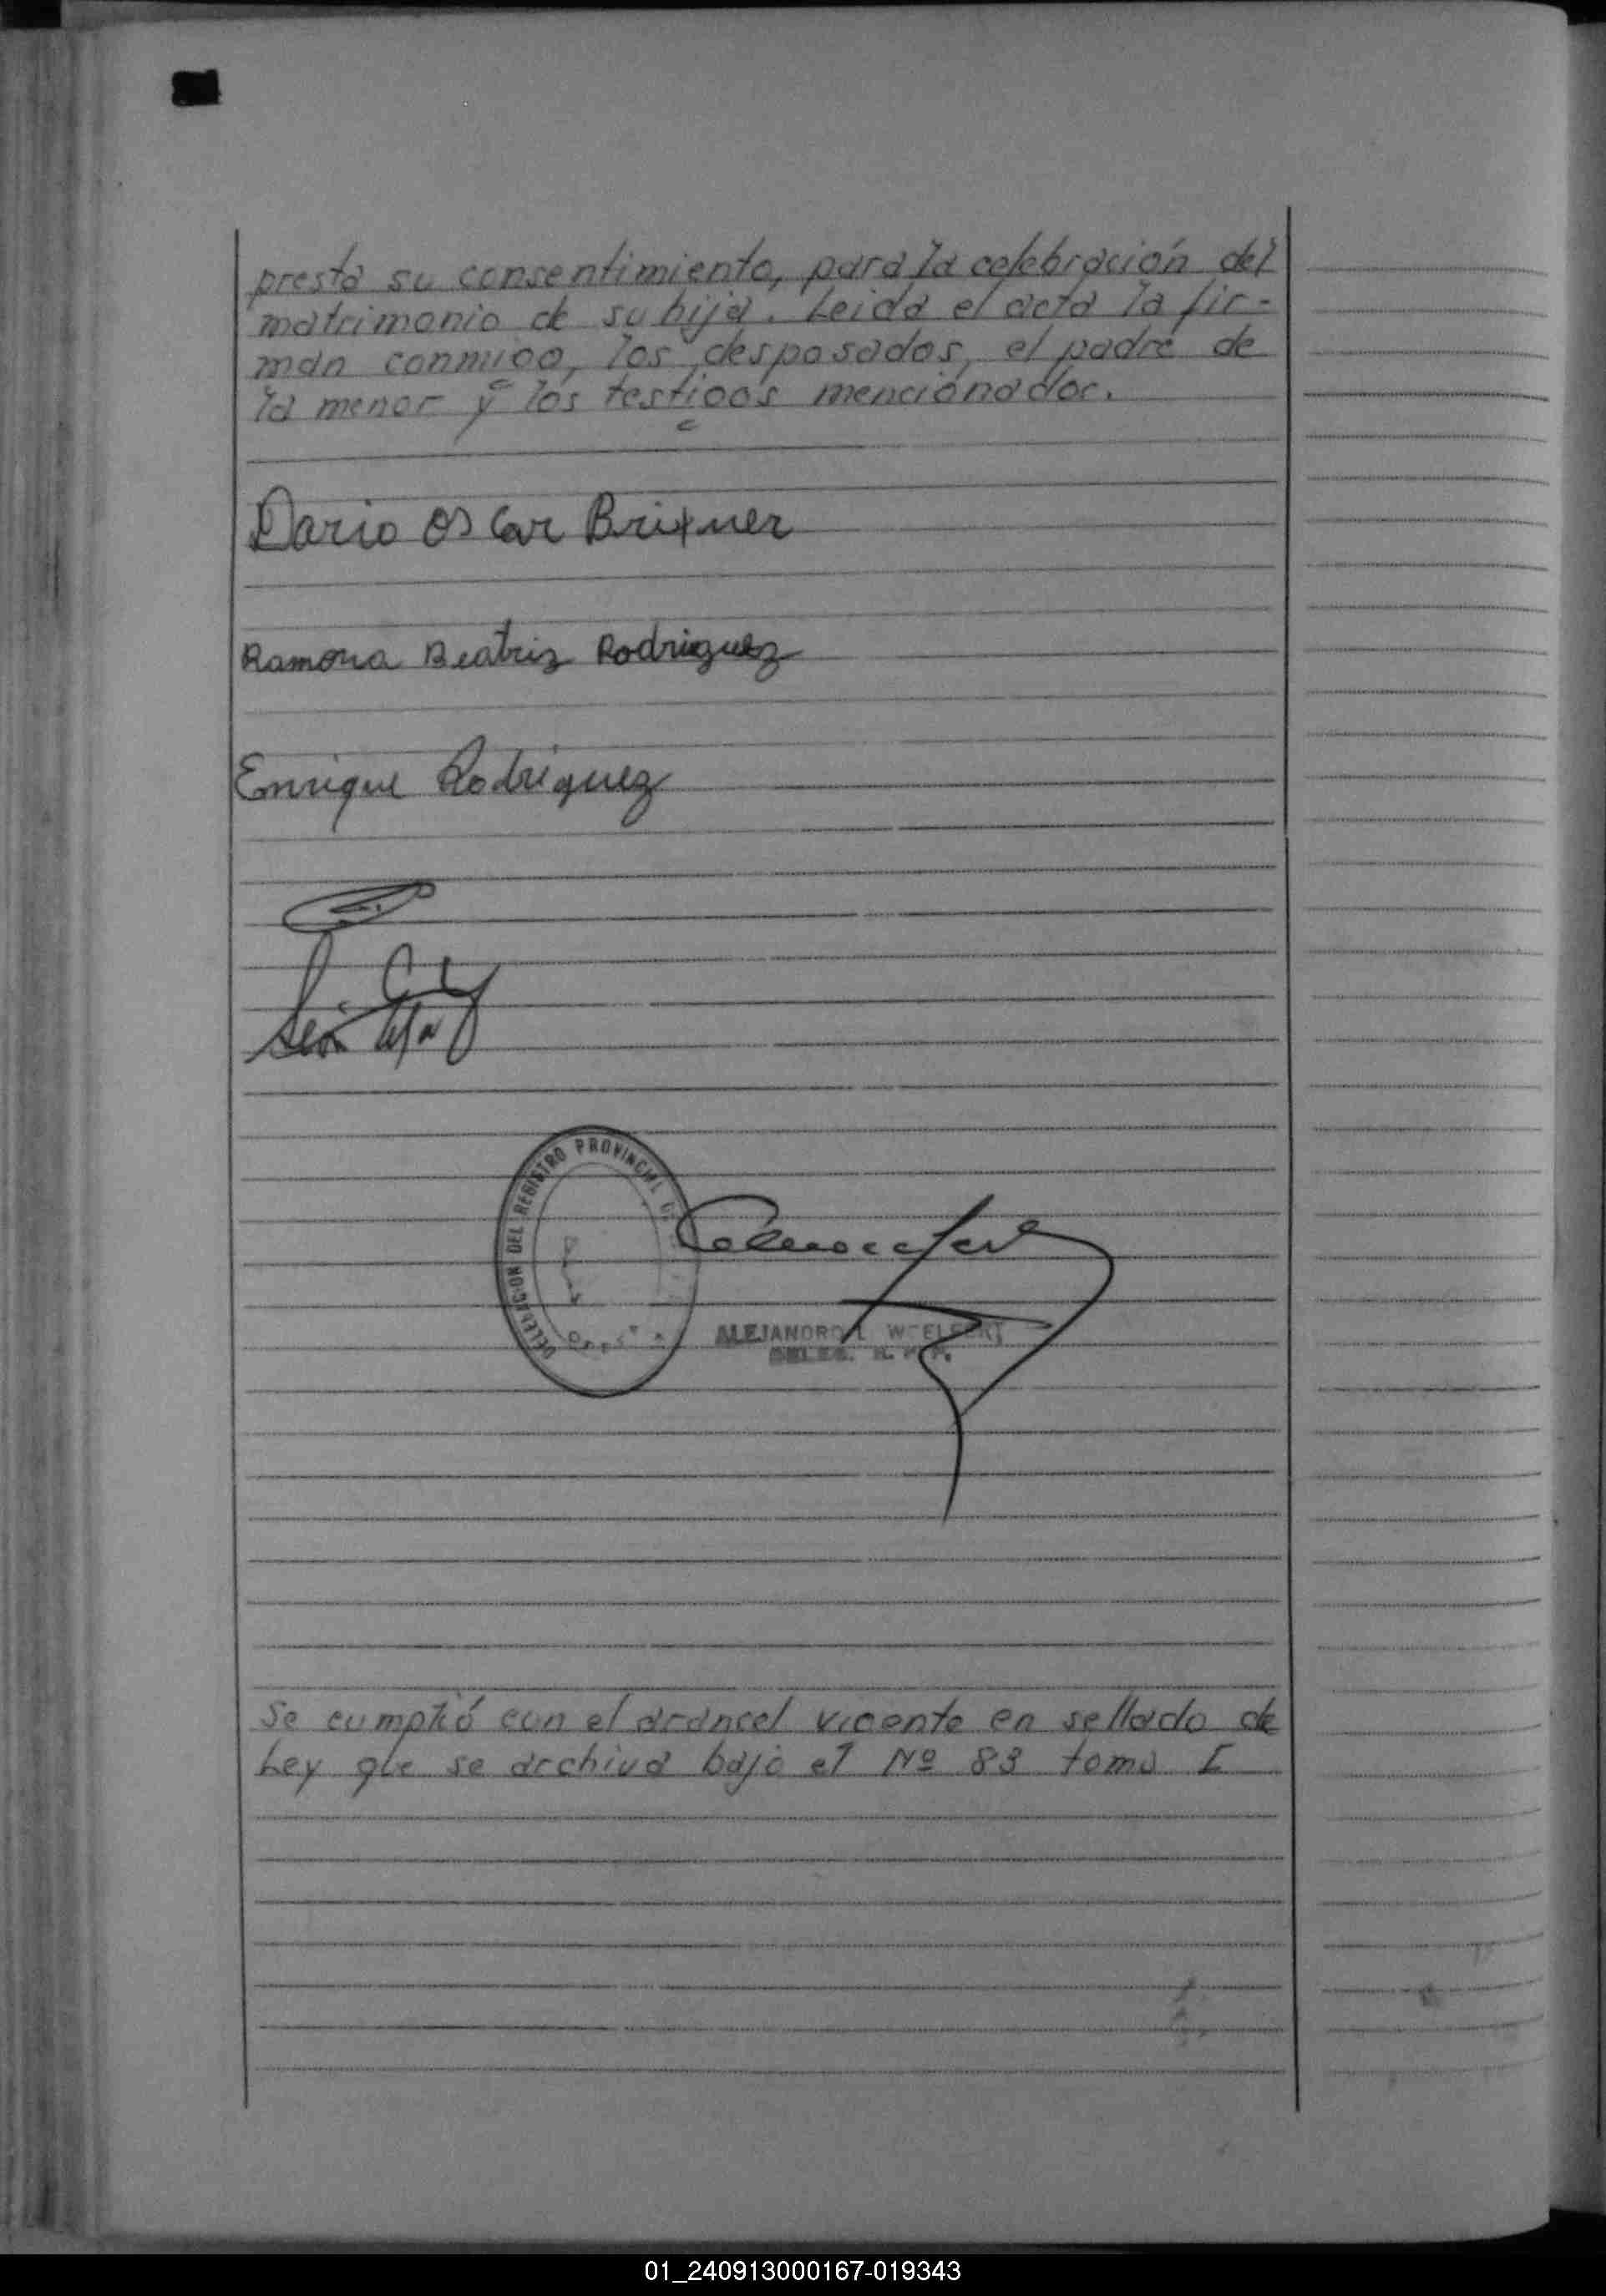 presta su consentimiento, para la celebración del
matrimonio de su hija. Leida el acta la fir-
man conmigo, los desposados, el padre de
la menor y los testigos mencionados.
Dario Oscar Brixner
Ramona Beatriz Rodriguez
Enrique Rodriguez
DELEGACION DEL REGISTRO PROVINCIAL DE
ALEJANDRO L. WOELFERT
DELEG. R. P. P.
Se cumplió con el arancel vigente en sellado de
Ley que se archiva bajo el Nº 83 tomo I
01_240913000167-019343